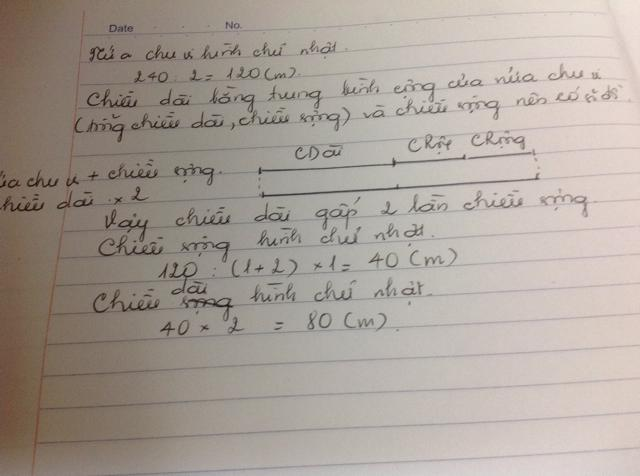 Date No.
Nửa chu vi hình chữ nhật.
240 : 2 = 120 (m).
Chiều dài bằng trung bình cộng của nửa chu vi
(tổng chiều dài, chiều rộng) và chiều rộng nên có sơ đồ
CDài CRộng CRộng
ửa chu vi + chiều rộng.
hiều dài × 2
Vậy chiều dài gấp 2 lần chiều rộng.
Chiều rộng hình chữ nhật.
120 : (1+2) × 1 = 40 (m)
Chiều dài hình chữ nhật.
40 × 2 = 80 (m).